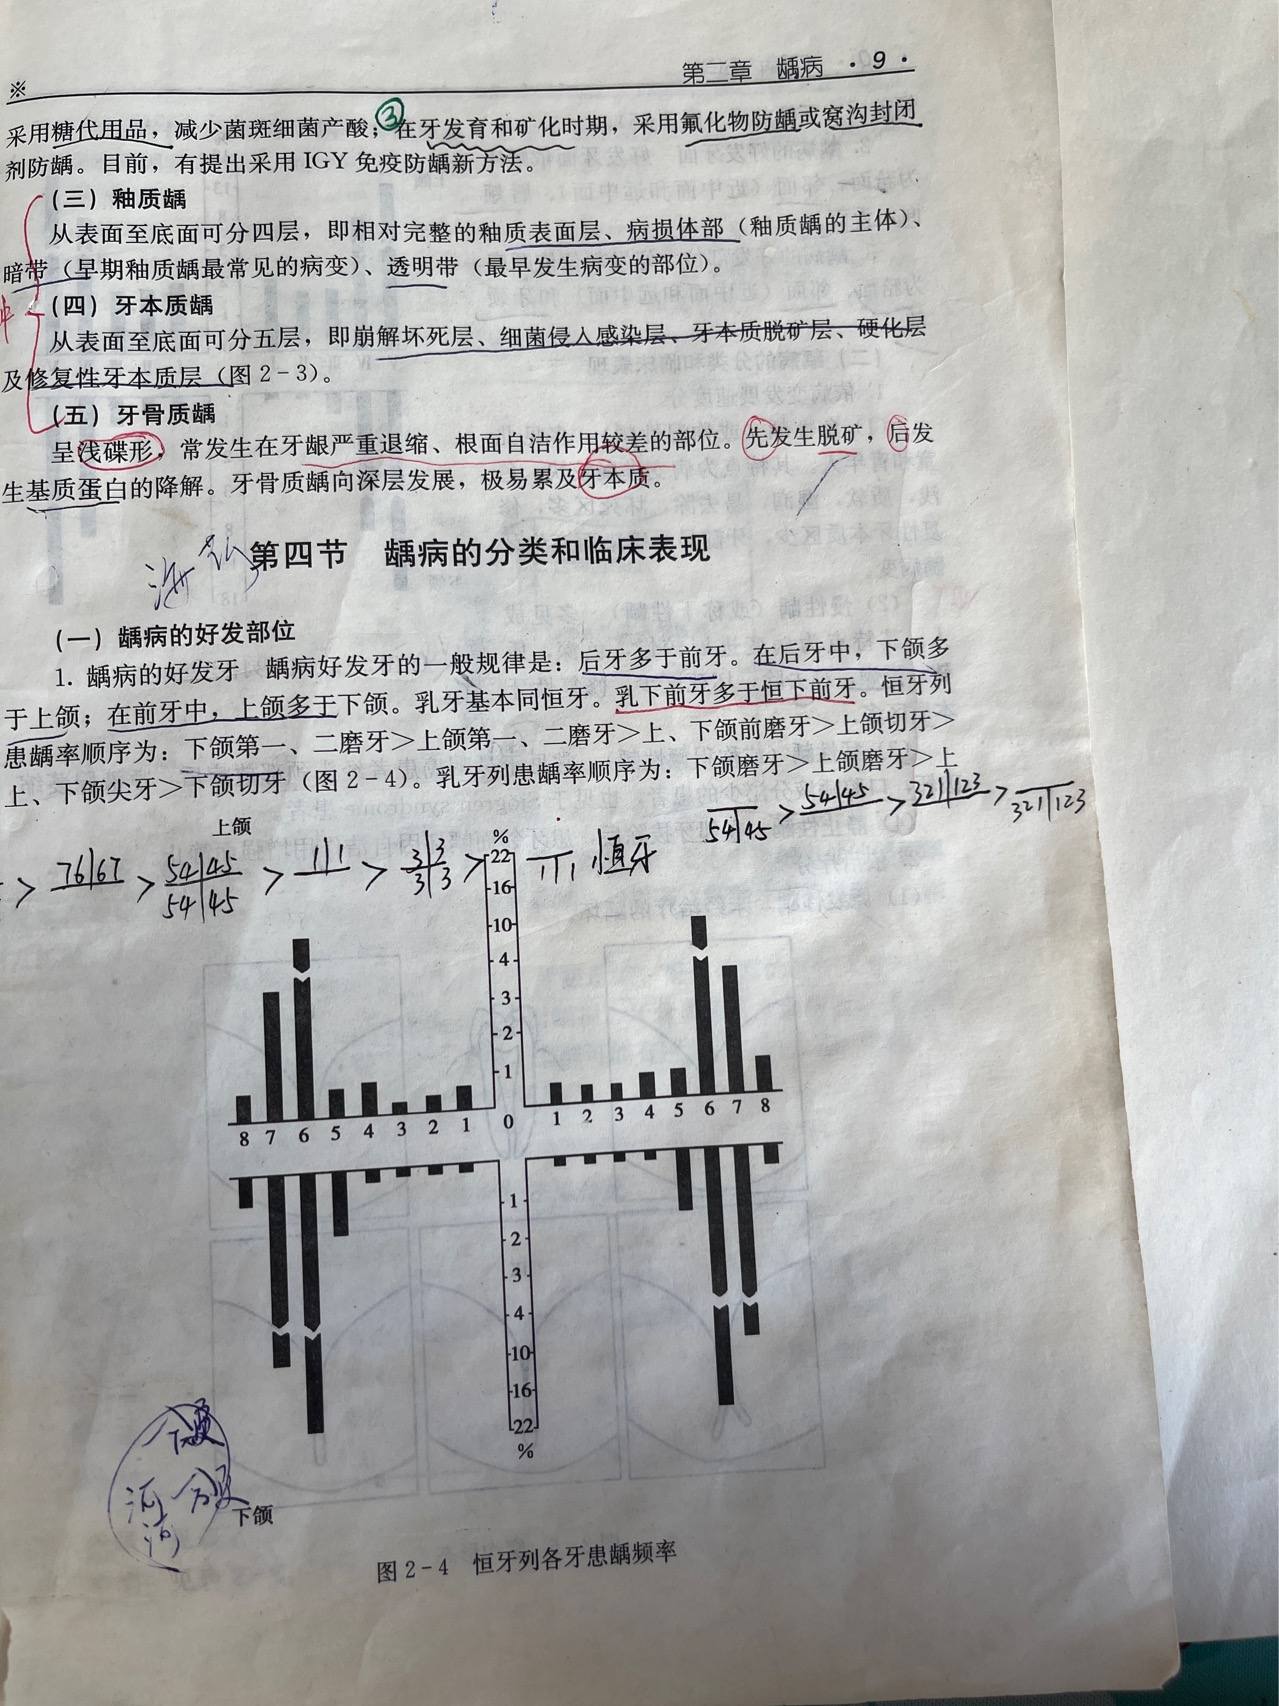 ※ 第二章 龋病 ·9·
采用糖代用品，减少菌斑细菌产酸；③在牙发育和矿化时期，采用氟化物防龋或窝沟封闭
剂防龋。目前，有提出采用 IGY 免疫防龋新方法。
（三）釉质龋
从表面至底面可分四层，即相对完整的釉质表面层、病损体部（釉质龋的主体）、
暗带（早期釉质龋最常见的病变）、透明带（最早发生病变的部位）。
（四）牙本质龋
从表面至底面可分五层，即崩解坏死层、细菌侵入感染层、牙本质脱矿层、硬化层
及修复性牙本质层（图 2-3）。
（五）牙骨质龋
呈浅碟形，常发生在牙龈严重退缩、根面自洁作用较差的部位。先发生脱矿，后发
生基质蛋白的降解。牙骨质龋向深层发展，极易累及牙本质。
第四节 龋病的分类和临床表现
（一）龋病的好发部位
1. 龋病的好发牙 龋病好发牙的一般规律是：后牙多于前牙。在后牙中，下颌多
于上颌；在前牙中，上颌多于下颌。乳牙基本同恒牙。乳下前牙多于恒下前牙。恒牙列
患龋率顺序为：下颌第一、二磨牙＞上颌第一、二磨牙＞上、下颌前磨牙＞上颌切牙＞
上、下颌尖牙＞下颌切牙（图 2-4）。乳牙列患龋率顺序为：下颌磨牙＞上颌磨牙＞上
54|45 > 54|45 > 321|123 > 321|123
上颌
> 76|67 > 54|45 > 1|1 > 3|3 > 1|1 恒牙
54|45 3|3
%
22
16
10
4
3
2
1
8 7 6 5 4 3 2 1 0 1 2 3 4 5 6 7 8
1
2
3
4
10
16
22
%
下颌
图 2-4 恒牙列各牙患龋频率